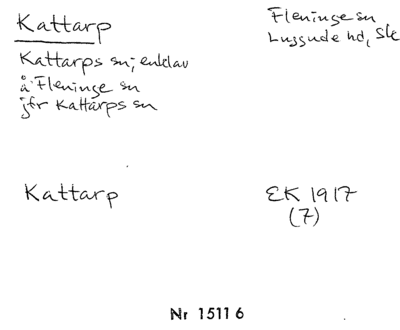 Kattarp
Fleninge sn
Luggude hd, Sk
Kattarps sn; enklav
å Fleninge sn
jfr Kattarps sn
Kattarp
EK 1917
(7)
Nr 15116